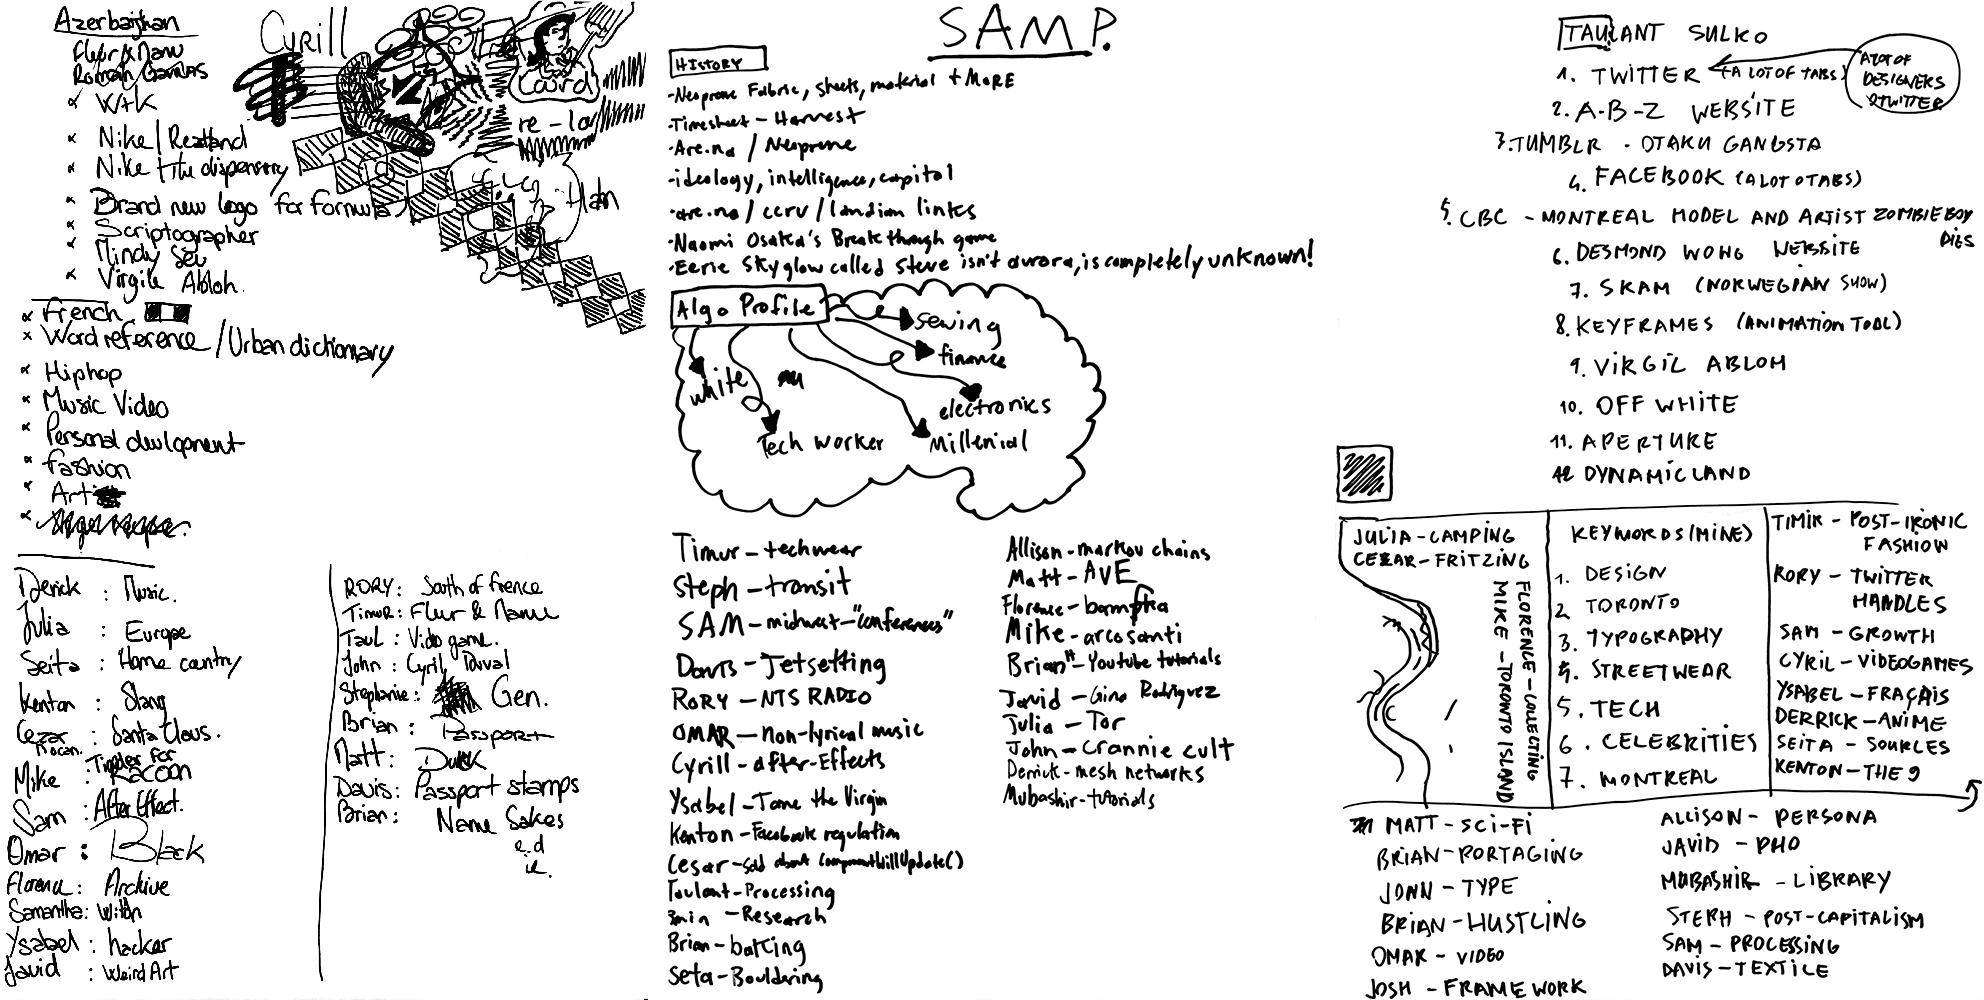 Azerbaijhan
Cyrill
Flur & Nanu
Roman Gavras
W+K
Nike / Reatband
Nike the dispensary
Brand new logo for formula
Scriptographer
Mindy Seu
Virgile Abloh.
Laird
re-la
Han
French
Word reference / Urban dictionary
Hiphop
Music Video
Personal devlopment
fashion
Art
Derick : Music.
Julia : Europe
Seita : Home cantry
Kenton : Slang
Cezar : Santa Claus.
Mike : Tinder for Racoon
Sam : After Effect.
Omar : Black
Florence : Archive
Samantha : With
Ysabel : hacker
Javid : Weird Art
RORY : South of France
Timur : Flur & Name
Taul : Video game.
John : Cyril Duval
Stephanie : Gen.
Brian : Passport
Matt : Duck
Davis : Passport stamps
Brian : Name Sakes
e.d
ie.
SAM P.
HISTORY
-Neoprene Fabric, sheets, material + MORE
-Timesheet - Harvest
-Are.na / Neoprene
-ideology, intelligence, capital
-are.na / ccru / landian links
-Naomi Osaka's Breakthrough game
-Eerie Skyglow called Steve isn't aurora, is completely unknown!
Algo Profile
sewing
finance
electronics
Millenial
Tech worker
white
Timur - techwear
Steph - transit
SAM - midwest - "conferences"
Davis - Jetsetting
RORY - NTS RADIO
OMAR - non-lyrical music
Cyrill - after-Effects
Ysabel - Jane the Virgin
Kenton - Facebook regulation
Cesar - sad about componentWillUpdate()
Taulant - Processing
- Research
Brian - batting
Seta - Bouldering
Allison - markov chains
Matt - AVE
Florence -
Mike - arcosanti
Brian H - Youtube tutorials
Javid - Gina Rodriguez
Julia - Tor
John - Crannie cult
Derrick - mesh networks
Mubashir - tutorials
TAULANT SULKO
1. TWITTER (A LOT OF TABS)
A LOT OF DESIGNERS @TWITTER
2. A-B-Z WEBSITE
3. TUMBLR - OTAKU GANGSTA
4. FACEBOOK (A LOT O TABS)
5. CBC - MONTREAL MODEL AND ARTIST ZOMBIEBOY DIES
6. DESMOND WONG WEBSITE
7. SKAM (NORWEGIAN SHOW)
8. KEYFRAMES (ANIMATION TOOL)
9. VIRGIL ABLOH
10. OFF WHITE
11. APERTURE
12 DYNAMICLAND
JULIA - CAMPING
CEZAR - FRITZING
FLORENCE - COLLECTING
MIKE - TORONTO ISLAND
KEYWORDS (MINE)
1. DESIGN
2 TORONTO
3. TYPOGRAPHY
4. STREETWEAR
5. TECH
6. CELEBRITIES
7. MONTREAL
TIMIR - POST-IRONIC FASHION
RORY - TWITTER HANDLES
SAM - GROWTH
CYRIL - VIDEOGAMES
YSABEL - FRAÇAIS
DERRICK - ANIME
SEITA - SOURCES
KENTON - THE 9
MATT - SCI-FI
BRIAN - PORTAGING
JOHN - TYPE
BRIAN - HUSTLING
OMAR - VIDEO
JOSH - FRAMEWORK
ALLISON - PERSONA
JAVID - PHO
MUBASHIR - LIBRARY
STEPH - POST-CAPITALISM
SAM - PROCESSING
DAVIS - TEXTILE